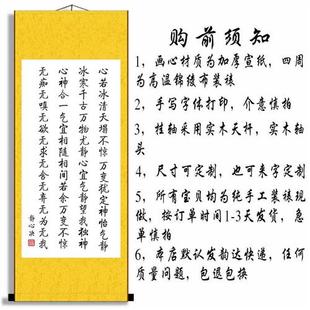 心若冰清天塌不惊万变犹定神怡气静
冰寒千古万物尤静心宜气静望我独神
心神合一气宜相随相间若余万变不惊
无痴无嗔无欲无求无舍无弃无为无我
静心决
购前须知
1,画心材质为加厚宣纸,四周
为高温锦绫布装裱
2,手写字体打印,介意慎拍
3,挂轴采用实木天杆,实木轴
头
4,尺寸可定制,也可来字定制
5,所有宝贝均为纯手工装裱现
做,按订单时间1-3天发货,急
单慎拍
6,本店默认发韵达快递,任何
质量问题,包退包换